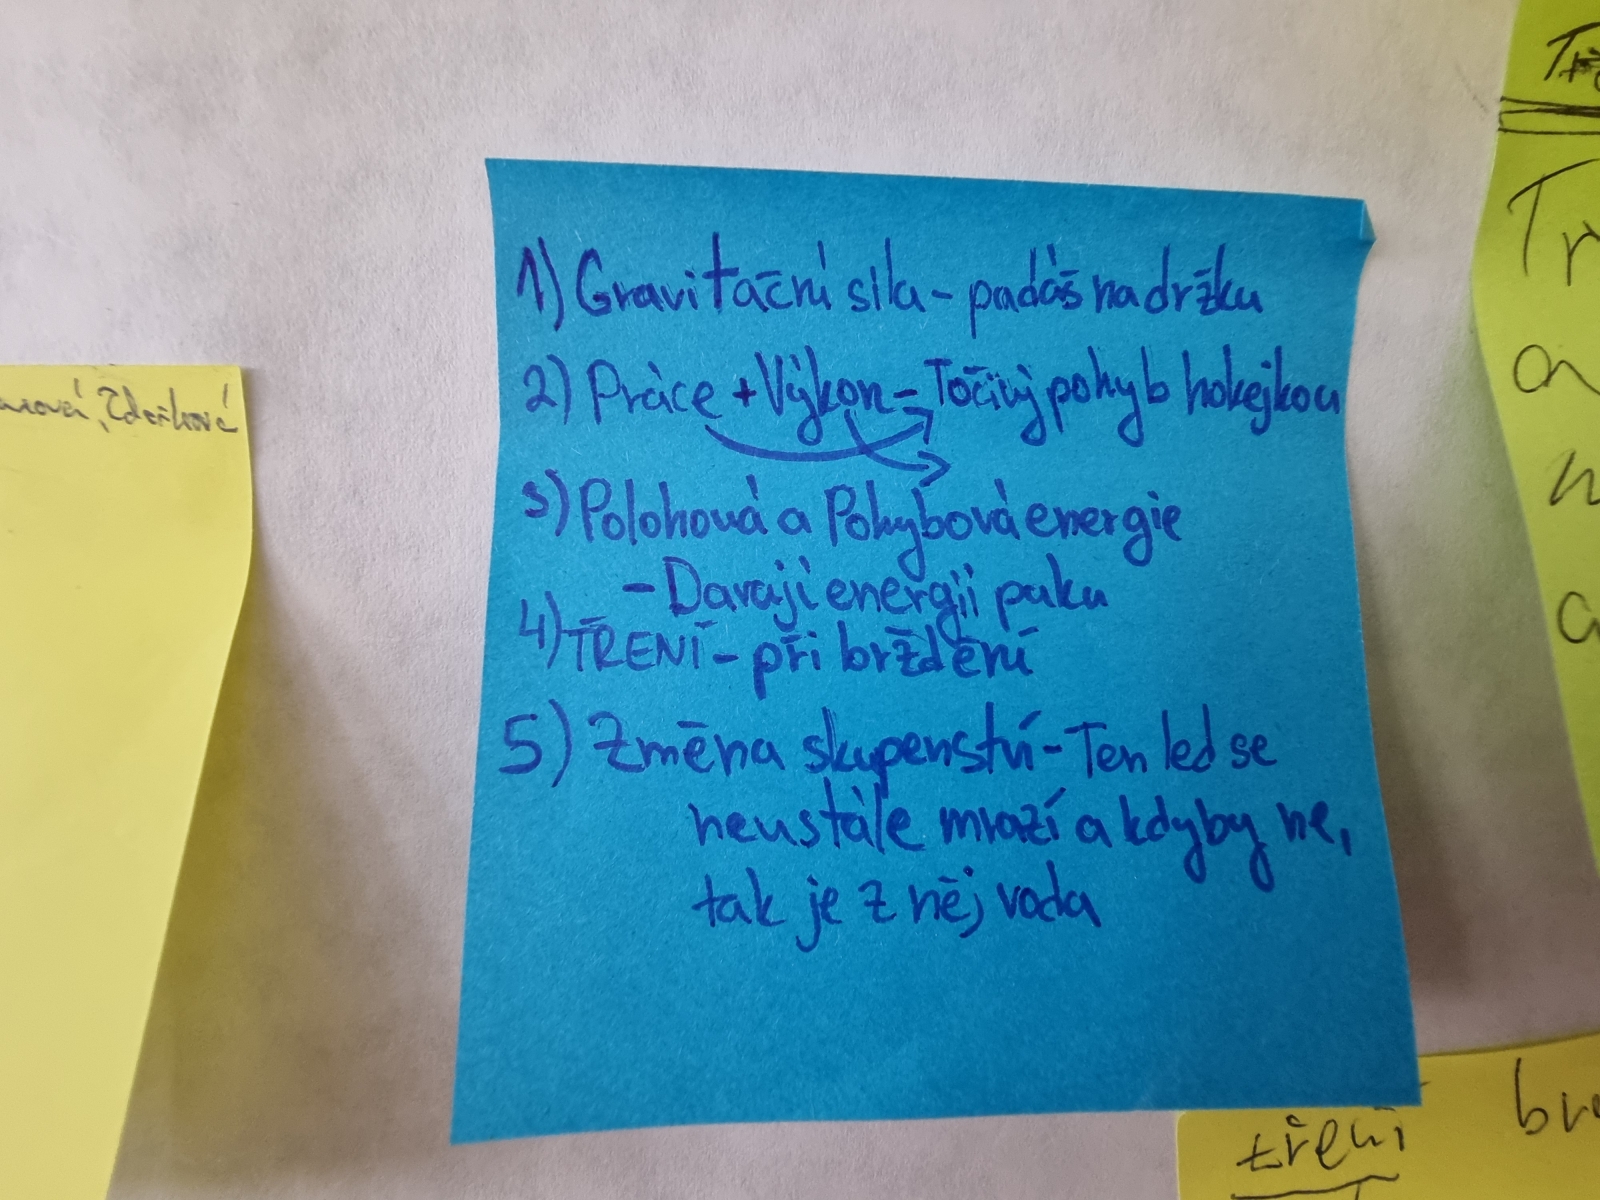 1) Gravitační síla - padáš na držku
2) Práce + Výkon - Točivý pohyb hokejkou
3) Polohová a Pohybová energie
- Davají energii puku
4) TŘENÍ - při brždění
5) Změna skupenství - Ten led se
neustále mrazí a kdyby ne,
tak je z něj voda
tření